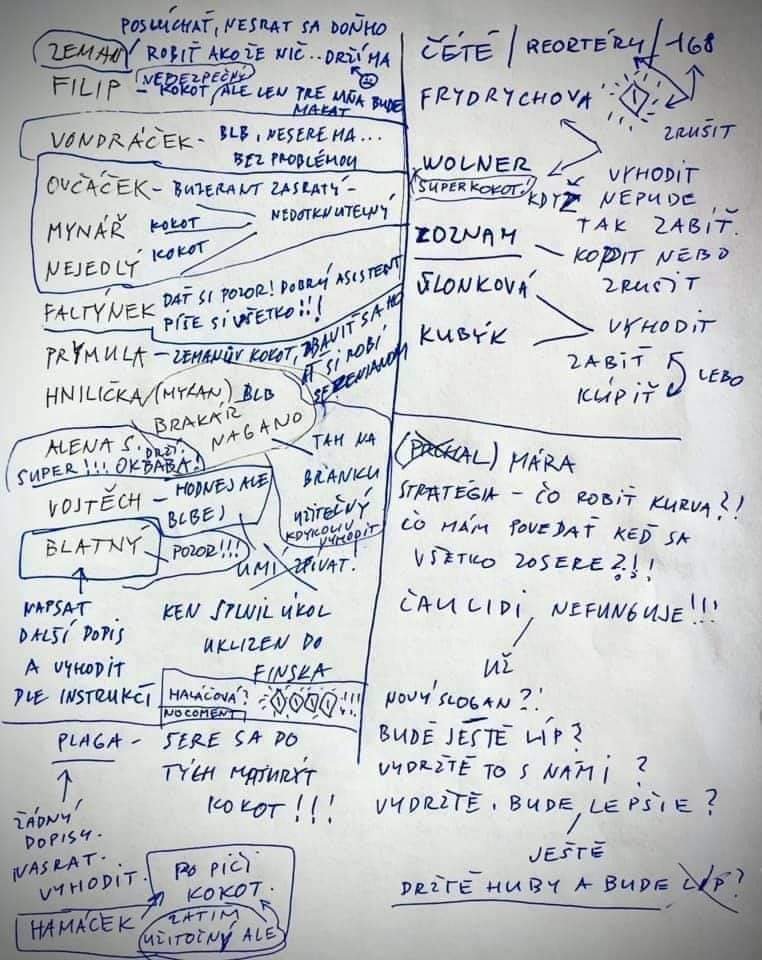 POSLÚCHAŤ, NESRAT SA DOŇHO
ZEMAN / ROBIŤ AKOŽE NIČ.. DRŽÍ MA
FILIP - (NEBEZPEČNÝ) KOKOT, ALE LEN PRE MŇA BUDE
MAKAT
VONDRÁČEK - BLB, NESERE MA...
BEZ PROBLÉMOV
OVČÁČEK - BUZERANT ZASRATÝ -
MYNÁŘ KOKOT NEDOTKNUTELNÝ
NEJEDLÝ KOKOT
FALTÝNEK DAŤ SI POZOR! DOBRÝ ASISTENT
PÍŠE SI VŠETKO!!!
PRYMULA - ZEMANŮV KOKOT, ZBAVIŤ SA HO
AŤ SI ROBÍ
SE ZEMANOM
HNILIČKA / (MYLAN) BLB
BRAKÁŘ
NAGANO
ALENA S. DRŽÍ.
SUPER!!! OK BABA!
TAH NA
BRANKU
UŽITEČNÝ
KDYKOLIV
VYHODIT
VOJTĚCH - HODNEJ ALE
BLBEJ
BLATNÝ - POZOR!!!
UMÍ ZPÍVAT!
NAPSAT
DALŠÍ DOPIS
A VYHODIT
DLE INSTRUKČÍ
KEN SPLNIL ÚKOL
UKLIZEN DO
FINSKA
MALÁČOVÁ? !!!
NO COMENT
PLAGA - SERE SA DO
TÝCH MATURÝT
KOKOT!!!
ŽÁDNÝ
DOPISY.
NASRAT.
VYHODIT.
HAMÁČEK
PO PIČI
KOKOT.
ZATIM
UŽITOČNÝ ALE
ČÉTÉ / REORTÉRY / 168
FRYDRYCHOVA
ZRUŠIT
WOLNER
SUPERKOKOT!
VYHODIT
KDYŽ NEPUDE
TAK ZABIŤ.
ZOZNAM - KOPIT NEBO
ZRUSIT
SLONKOVÁ
KUBÝK
VYHODIT
ZABIŤ
LEBO
KLÍPIŤ
(PRCHAL) MÁRA
STRATÉGIA - ČO ROBIŤ KURVA?!
ČO MÁM POVEDAŤ KEĎ SA
VŠETKO ZOSERE?!!
ČAU LIDI, NEFUNGUJE!!!
UŽ
NOVÝ SLOGAN?!
BUDE JEŠTE LÍP?
VYDRŽTĚ TO S NÁMI?
VYDRŽTĚ, BUDE LEPŠIE?
JEŠTĚ
DRŽTĚ HUBY A BUDE LÍP?